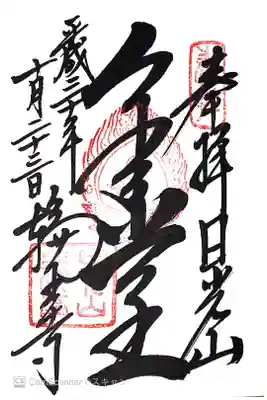 奉拝 日光山
金堂
平成三十年
十月二十三日
輪王寺
CamScanner でスキャン